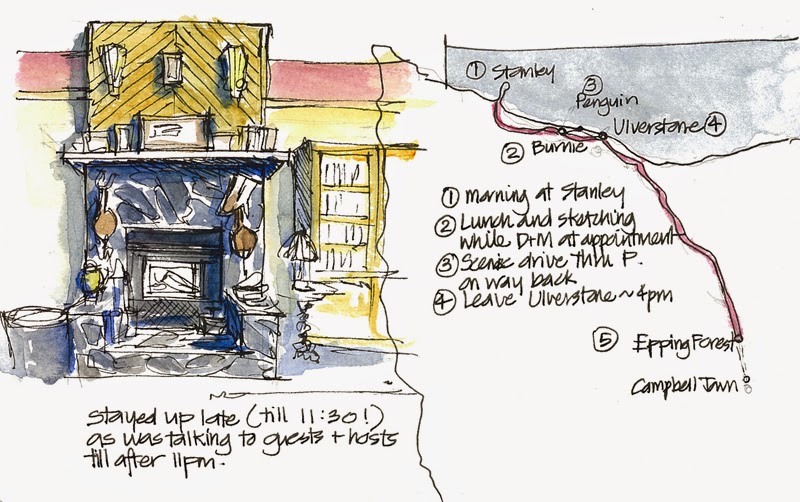 ① Stanley
③
Penguin
Ulverstone ④
② Burnie
① Morning at Stanley
② Lunch and sketching
while D+M at appointment
③ Scenic drive thru P.
on way back
④ Leave Ulverstone ~ 4pm
⑤ Epping Forest
Campbell Town
stayed up late (till 11:30!)
as was talking to guests + hosts
till after 11pm.